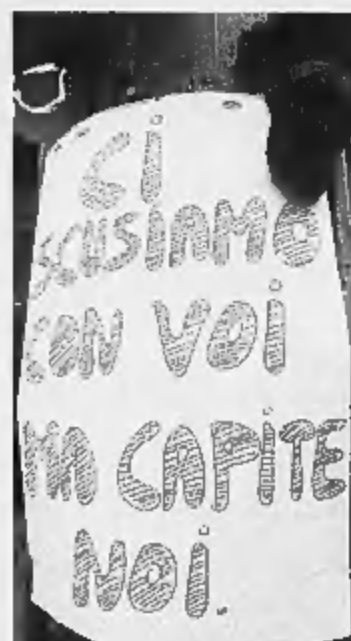 Ci
SCUSIAMO
CON VOI
MA CAPITE
NOI.